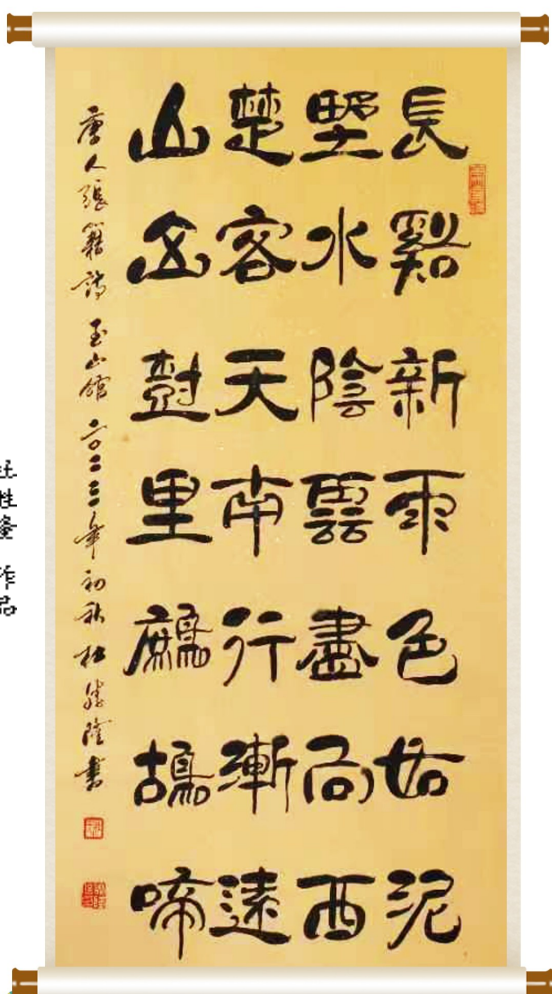 長谿新雨色如泥
野水陰雲盡向西
楚客天南行漸遠
山山尌里鷓鴣啼
唐人張籍詩 玉山館 二〇二三年初秋 杜勝隆書
作品